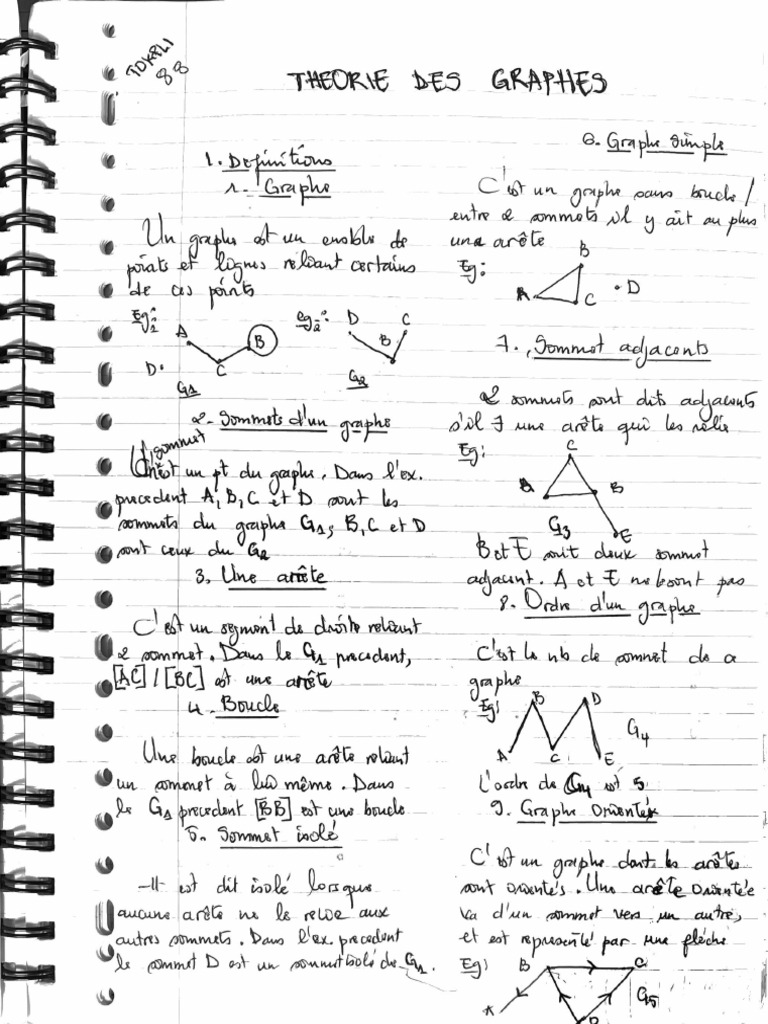 TOKPLI
88
THEORIE DES GRAPHES
1. Definitions
1. Graphe
Un graphe est un ensble de
points et lignes reliant certains
de ces points
Eg1:
A
B
D.
C
G1
eg2:
D
C
B
G2
2. Sommets d'un graphe
Un sommet
est un pt du graphe. Dans l'ex.
precedent A, B, C et D sont les
sommets du graphe G1, B, C et D
sont ceux du G2
3. Une arête
C'est un segment de droite reliant
2 sommet. Dans le G1 precedent,
[AC] / [BC] est une arête
4. Boucle
Une boucle est une arête reliant
un sommet à lui même. Dans
le G1 precedent [BB] est une boucle
5. Sommet isolé
Il est dit isolé lorsque
aucune arête ne le relie aux
autres sommets. Dans l'ex. precedent
le sommet D est un sommet isolé de G1.
6. Graphe simple
C'est un graphe sans boucle /
entre 2 sommets il y ait au plus
une arête
Eg:
B
A
C
. D
7. Sommet adjacents
2 sommets sont dits adjacents
s'il ∃ une arête qui les relie
Eg:
C
A
B
G3
E
B et E sont deux sommet
adjacent. A et E ne le sont pas
8. Ordre d'un graphe
C'est le nb de sommet de a
graphe
Eg:
B
D
G4
A
C
E
L'ordre de G4 est 5
9. Graphe Orientés
C'est un graphe dont les arêtes
sont orientés. Une arête orientée
va d'un sommet vers un autre,
et est représenté par une flèche
Eg:
B
C
G5
A
D